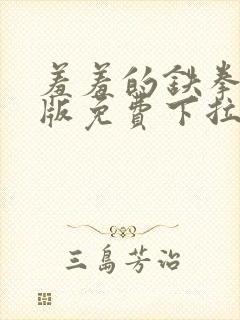 羞羞的铁拳
版免費下拉
三島芳治